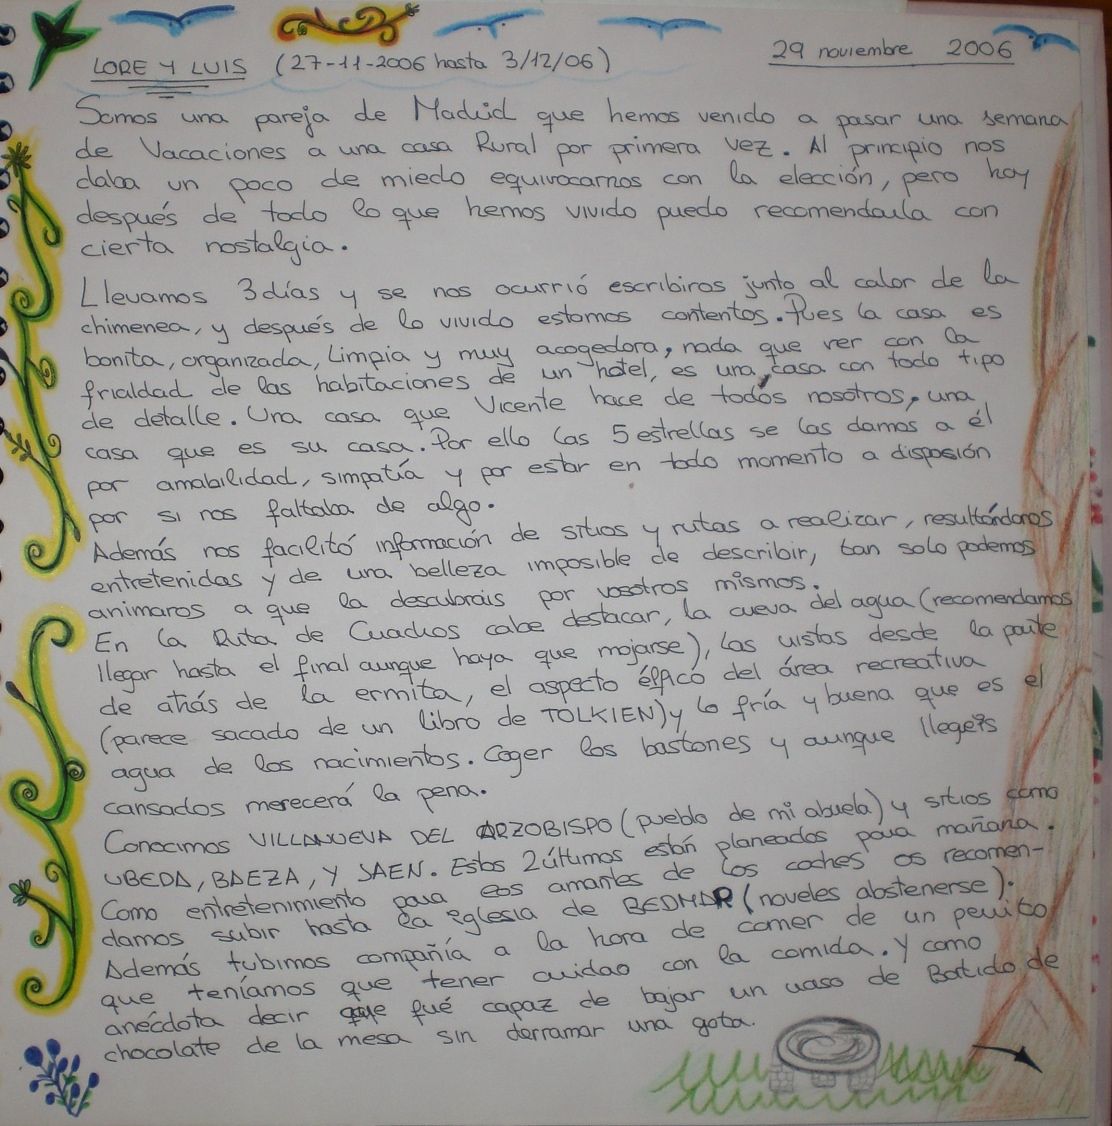 LORE Y LUIS (27-11-2006 hasta 3/12/06) 29 noviembre 2006
Somos una pareja de Madrid que hemos venido a pasar una semana
de Vacaciones a una casa Rural por primera vez. Al principio nos
daba un poco de miedo equivocarnos con la elección, pero hoy
después de todo lo que hemos vivido puedo recomendarla con
cierta nostalgia.
Llevamos 3 días y se nos ocurrió escribiros junto al calor de la
chimenea, y después de lo vivido estamos contentos. Pues la casa es
bonita, organizada, Limpia y muy acogedora, nada que ver con la
frialdad de las habitaciones de un hotel, es una casa con todo tipo
de detalle. Una casa que Vicente hace de todos nosotros, una
casa que es su casa. Por ello las 5 estrellas se las damos a él
por amabilidad, simpatía y por estar en todo momento a disposión
por si nos faltaba de algo.
Además nos facilitó información de sitios y rutas a realizar, resultándonos
entretenidas y de una belleza imposible de describir, tan solo podemos
animaros a que la descubrais por vosotros mismos.
En la Ruta de Cuadros cabe destacar, la cueva del agua (recomendamos
llegar hasta el final aunque haya que mojarse), las vistas desde la parte
de atrás de la ermita, el aspecto élfico del área recreativa
(parece sacado de un libro de TOLKIEN) y lo fría y buena que es el
agua de los nacimientos. Coger los bastones y aunque llegeis
cansados merecerá la pena.
Conocimos VILLANUEVA DEL ARZOBISPO (pueblo de mi abuela) y sitios como
UBEDA, BAEZA, Y JAEN. Estos 2 últimos están planeados para mañana.
Como entretenimiento para los amantes de los coches os recomen-
damos subir hasta la Iglesia de BEDMAR (noveles abstenerse).
Además tubimos compañía a la hora de comer de un perrito
que teníamos que tener cuidao con la comida. Y como
anécdota decir que fué capaz de bajar un vaso de Batido de
chocolate de la mesa sin derramar una gota.